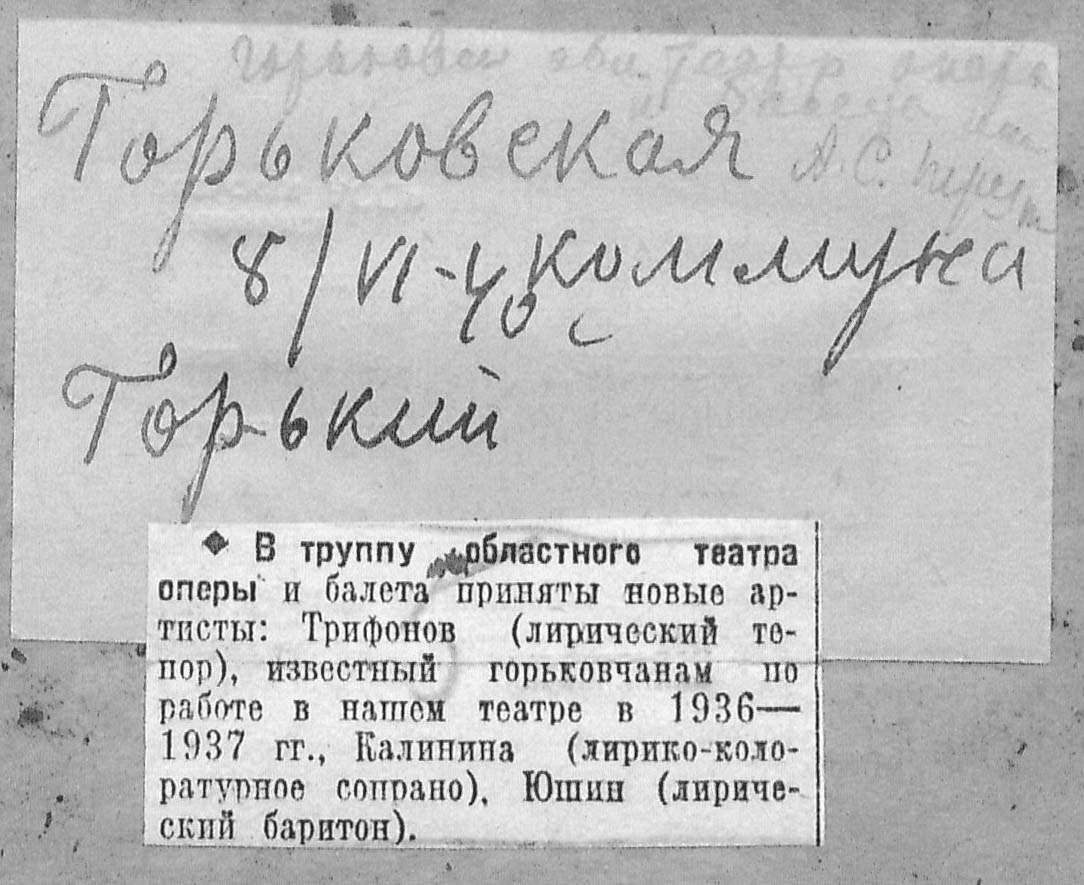 А.С.
Горьковская
8/VI-40 коммуна
Горький
◆ В труппу областного театра
оперы и балета приняты новые ар-
тисты: Трифонов (лирический те-
нор), известный горьковчанам по
работе в нашем театре в 1936—
1937 гг., Калинина (лирико-коло-
ратурное сопрано), Юшин (лириче-
ский баритон).